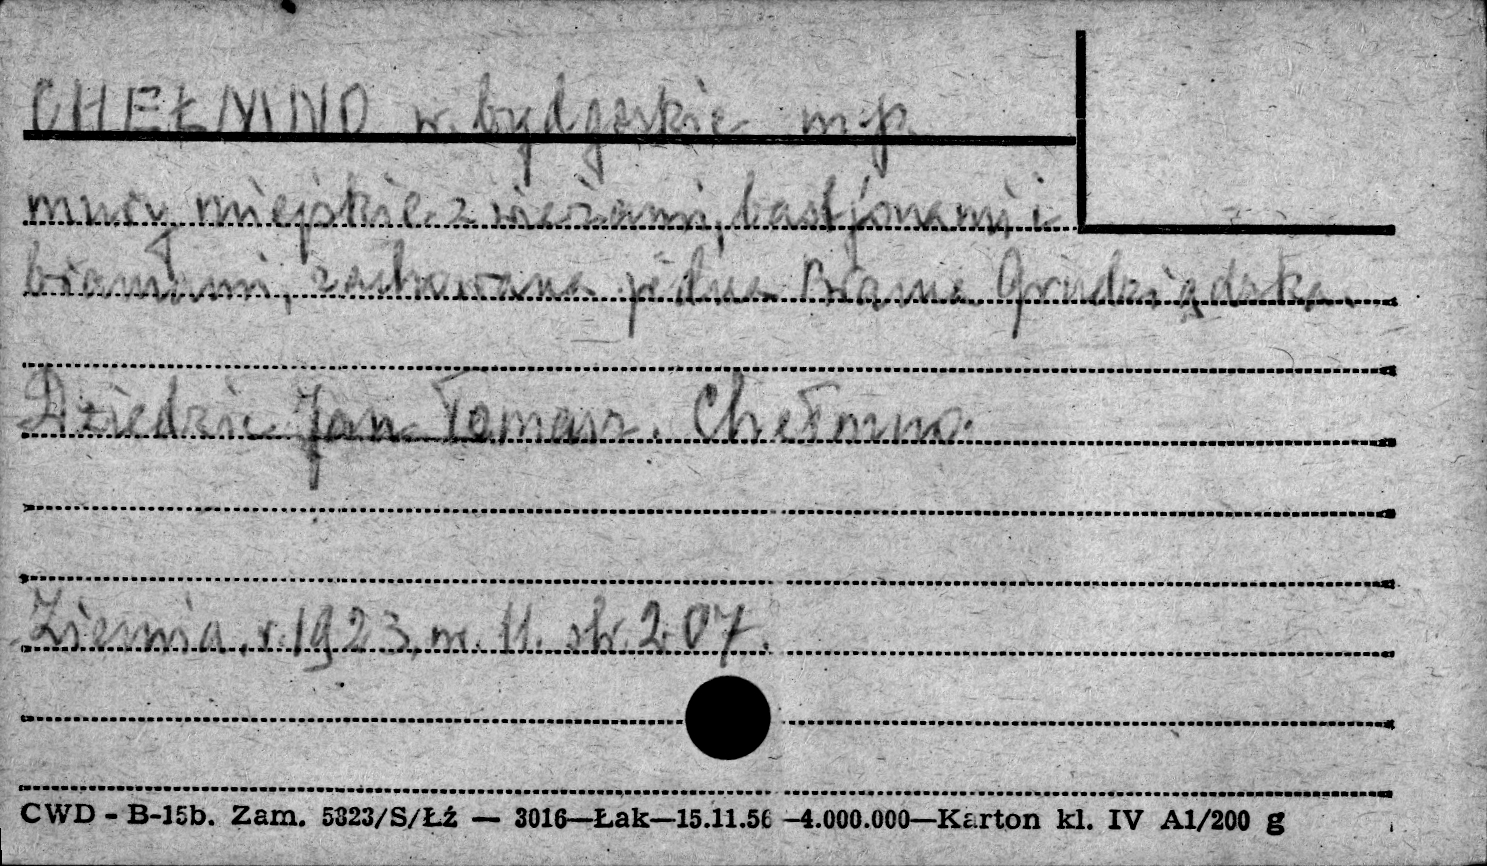 CHEŁMNO w. bydgoskie m-p.
mury miejskie z wieżami, bastjonami i
bramami, zachowana jedna Brama Grudziądzka.
Dziedzic Jan Tomasz. Chełmno.
Ziemia, r. 1923, nr. 11. str. 207.
CWD - B-15b. Zam. 5323/S/Łź — 3016—Łak—15.11.56 —4.000.000—Karton kl. IV A1/200 g